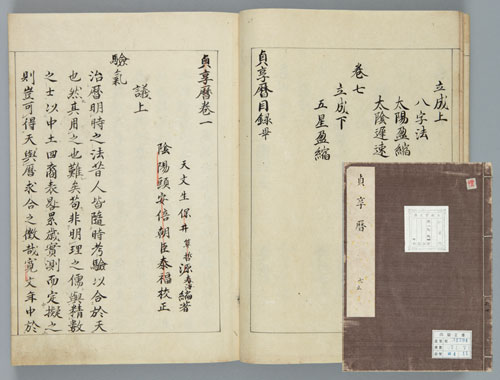 立成上
八字法
太陽盈縮
太陰遲速
卷七
立成下
五星盈縮
貞享暦目録畢
貞享暦卷一
天文生 保井算哲源春海編著
陰陽頭安倍朝臣泰福校正
議上
驗氣
治暦明時之法昔人皆隨時考驗以合於天
也然其用之也難矣苟非明理之儒與精數
之士以中土四裔表晷累歳實測而定擬之
則豈可得天與暦求合之徴哉寛文年中於
貞享暦